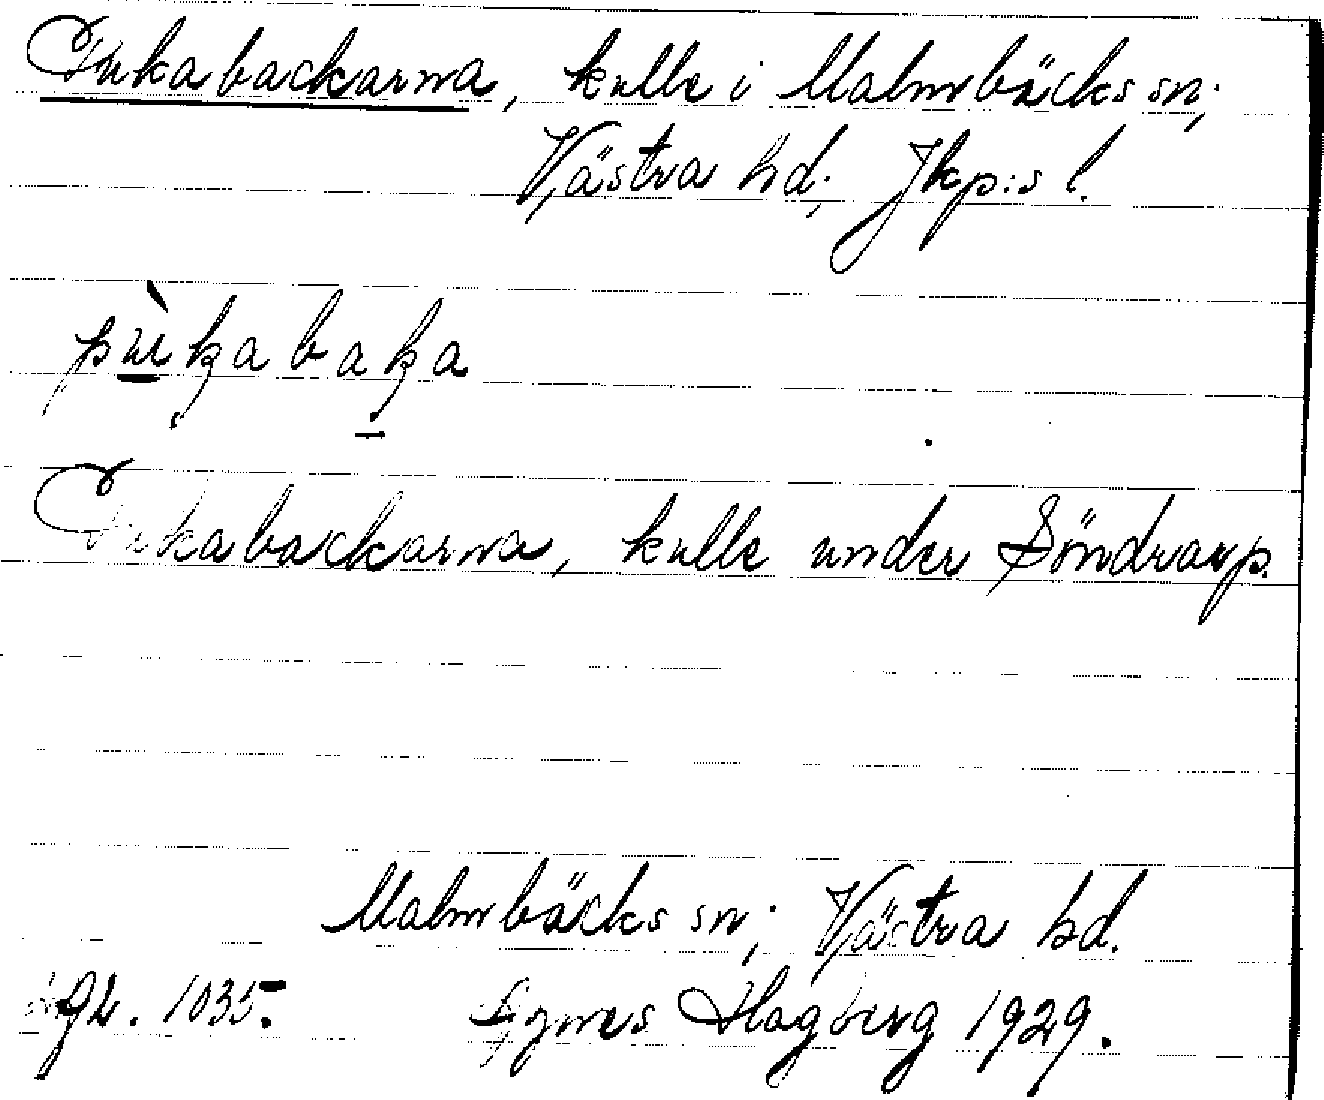 Pukabackarna, kulle i Malmbäcks sn;
Västra hd; Jkp:s l.
pùkabaka
Pukabackarna, kulle under Söndrarp.
Malmbäcks sn; Västra hd.
1035.
Agnes Hagberg 1929.